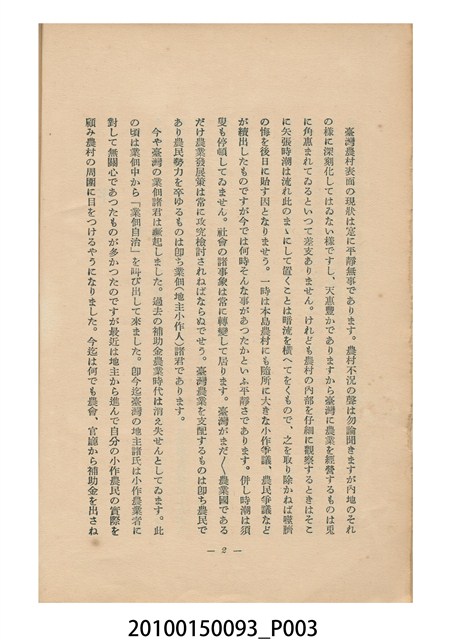 臺灣農村表面の現狀は寔に平靜無事であります。農村不況の聲は勿論聞きますが內地のそれ
の樣に深刻化してはゐない樣ですし、天惠豐かでありますから臺灣に農業を經營するものは兎
に角惠まれてゐるといつて差支ありません。けれども農村の內部を仔細に觀察するときはそこ
に矢張時潮は流れ此のまゝにして置くことは暗流を橫へてをくもので、之を取り除かねば噬臍
の悔を後日に貽す因となりませう。一時は本島農村にも隨所に大きな小作爭議、農民爭議など
が續出したものですが今では何時そんな事があつたかといふ平靜さであります。併し時潮は須
臾も停頓してゐません。社會の諸事象は常に轉變して居ります。臺灣がまだ〱農業國である
だけ農業發展策は常に攻究檢討されねばならぬでせう。臺灣農業を支配するものは卽ち農民で
あり農民勢力を牽ゆるものは卽ち業佃(地主小作人)諸君であります。
今や臺灣の業佃諸君は蹶起しました。過去の補助金農業時代は消え失せんとしてゐます。此
の頃は業佃中から「業佃自治」を叫び出して來ました。卽今迄臺灣の地主諸氏は小作農業者に
對して無關心であつたものが多かつたのですが最近は地主から進んで自分の小作農民の實際を
顧み農村の周圍に目をつけるやうになりました。今迄は何でも農會、官廳から補助金を出さね
— 2 —
20100150093_P003